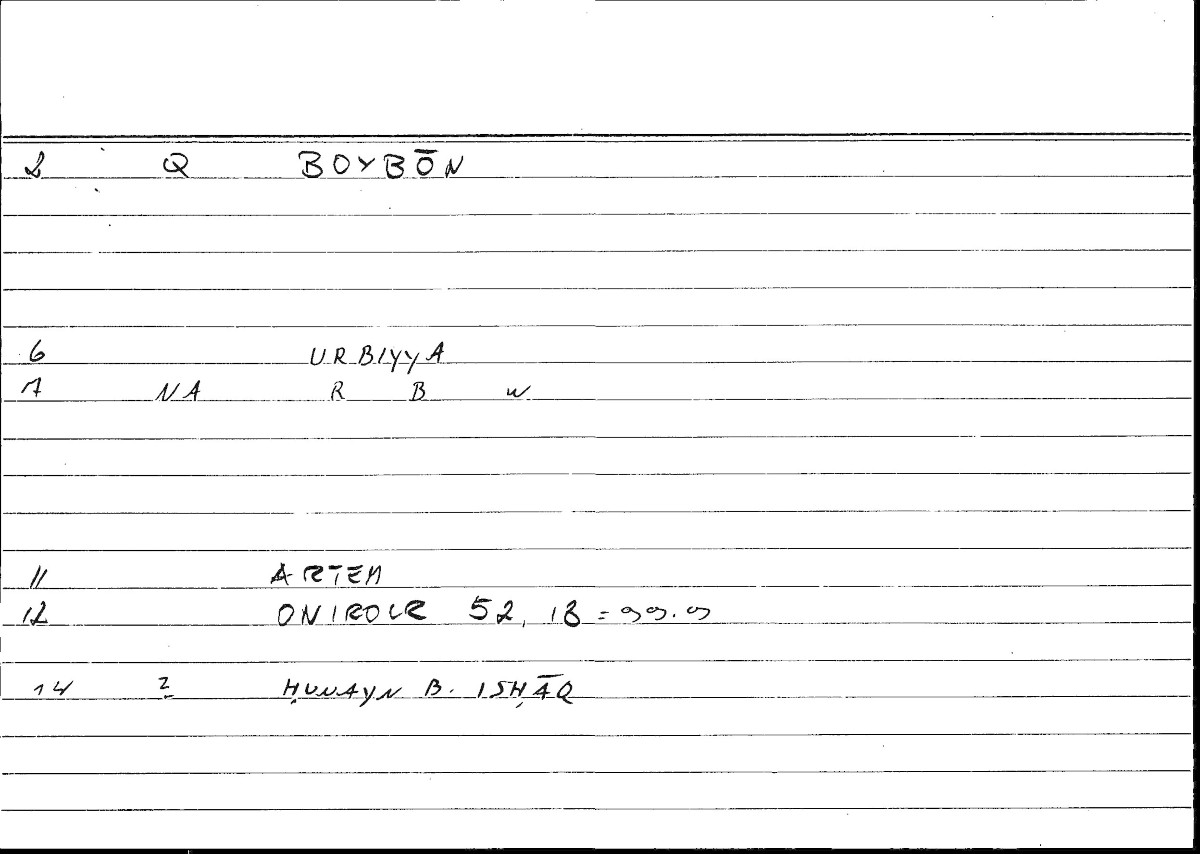 2 Q BOYBŌN
6 URBIYYA
7 NA R B W
11 ARTEM
12 ONIROCR 52, 18 = 99.9
14 2 ḤUNAYN B. ISḤĀQ